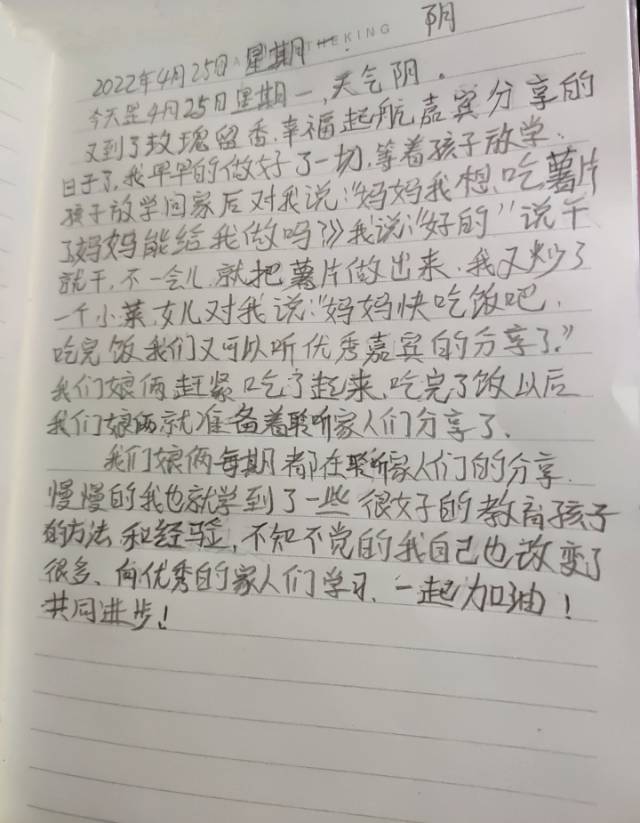 2022年4月25日 星期一. 阴
THEKING
今天是4月25日星期一,天气阴.
又到了玫瑰留香.幸福起航嘉宾分享的
日子了,我早早的做好了一切,等着孩子放学.
孩子放学回家后对我说:“妈妈我想.吃薯片
了妈妈能给我做吗?》我说:“好的”说干
就干,不一会儿.就把薯片做出来.我又炒了
一个小菜,女儿对我说:“妈妈快吃饭吧.
吃完饭我们又可以听优秀嘉宾的分享了.”
我们娘俩赶紧吃了起来.吃完了饭以后
我们娘俩就准备着聆听家人们分享了.
我们娘俩每期都在聆听家人们的分享.
慢慢的我也就学到了一些很好的教育孩子
的方法和经验,不知不觉的我自己也改变了
很多、向优秀的家人们学习、一起加油!
共同进步!